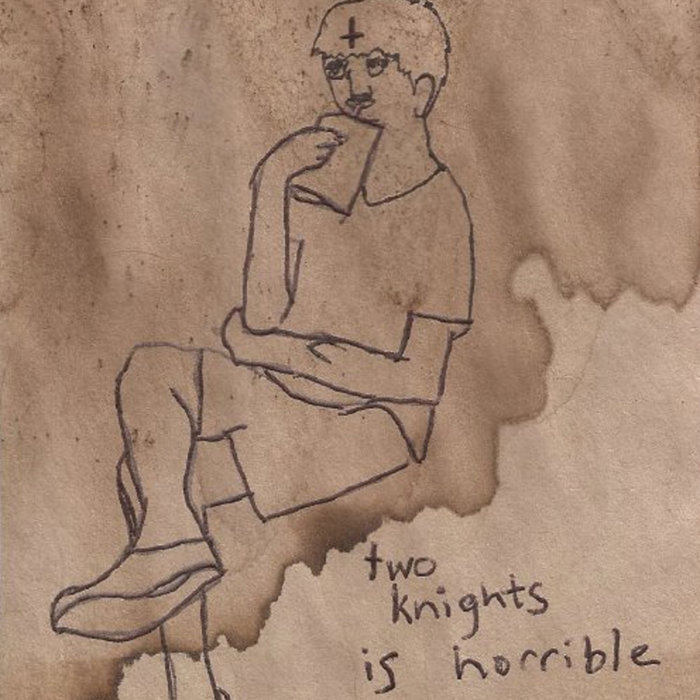 two
knights
is horrible